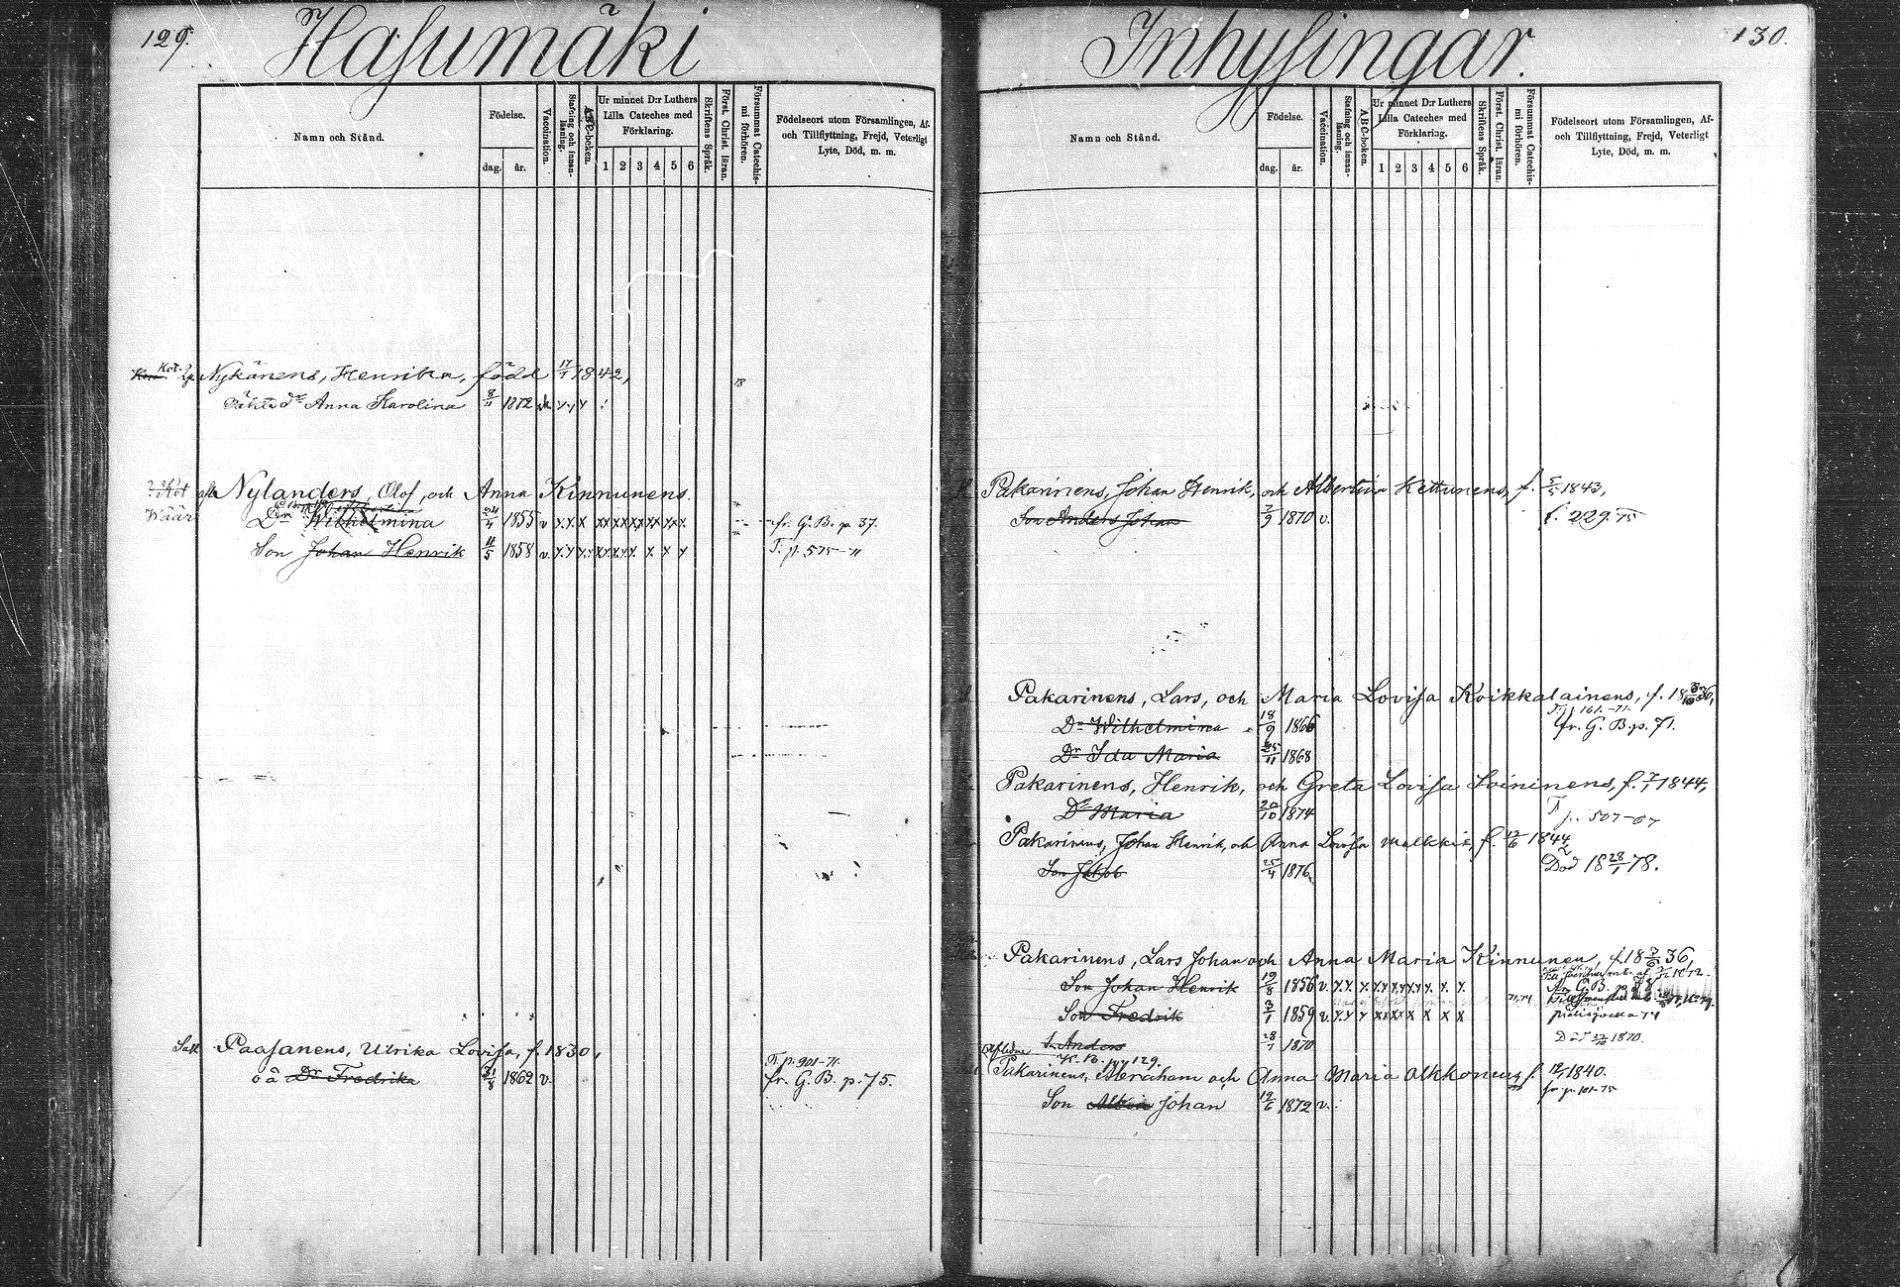 129.
Hasumäki
Namn och Stånd.
Födelse.
dag. år.
Vaccination.
Stafning och innan-läsning.
ABC-boken.
Ur minnet D:r Luthers Lilla Cateches med Förklaring.
1 2 3 4 5 6
Skriftens Språk.
Först. Christ. läran.
Försummat Catechis-mi förhören.
Födelseort utom Församlingen, Af- och Tillflyttning, Frejd, Veterligt Lyte, Död, m. m.
Nykänens, Henrika, född 17/1 1842,
Anna Karolina 8/11 1872
Nylanders, Olof, och Anna Kinnunens.
Dr Wilhelmina 24/4 1855 v fr. G. B. p. 37.
Son Johan Henrik 11/5 1858 v. T. p. 575
Paasanens, Ulrika Lovisa, f. 1830,
T. p. 901-71.
o ä Dr Fredrika 31/8 1862 v. fr. G. B. p. 75.
130.
Inhysingar.
Namn och Stånd.
Födelse.
dag. år.
Vaccination.
Stafning och innan-läsning.
ABC-boken.
Ur minnet D:r Luthers Lilla Cateches med Förklaring.
1 2 3 4 5 6
Skriftens Språk.
Först. Christ. läran.
Försummat Catechis-mi förhören.
Födelseort utom Församlingen, Af- och Tillflyttning, Frejd, Veterligt Lyte, Död, m. m.
Pakarinens, Johan Henrik, och Albertina Kettunens, f. 5/5 1843,
Son Anders Johan 7/9 1870 v. 229. 75
Pakarinens, Lars, och Maria Lovisa Koikkalainens, f.
T. p. 161.-71.
Dr Wilhelmina 18/9 1866 fr. G. B. p. 71.
Dr Ida Maria 25/11 1868
Pakarinens, Henrik, och Greta Lovisa Soininens, f. 7/1 1844,
Dr Maria 20/10 1874 T p. 507-67
Pakarinens, Johan Henrik, och Anna Lovisa Malkki, f. 12/6 1844,
Son Jakob 25/4 1876 Död 18 28/1 78.
Pakarinens, Lars Johan och Anna Maria Kinnunen, f. 18 7/6 36,
Son Johan Henrik 19/8 1856 v. G. B. p.
Son Fredrik 3/1 1859 v.
s. Anders 28/7 1870 Död 1870.
Aflidne K. B. p. 129.
Pakarinens, Abraham och Anna Maria Olkkonens f. 12/1 1840.
fr. p. 101-75
Son Johan 19/6 1872 v.